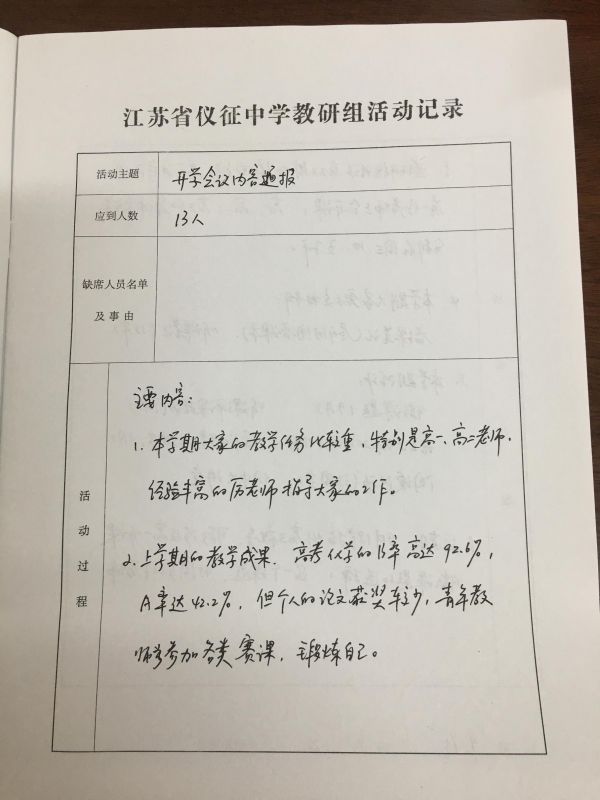 江苏省仪征中学教研组活动记录
活动主题
开学会议内容通报
应到人数
13人
缺席人员名单
及事由
活动过程
主要内容：
1. 本学期大家的教学任务比较重，特别是高一、高二老师，
经验丰富的历老师指导大家的工作。
2. 上学期的教学成果，高考化学的B率高达92.6%，
A率达42.2%，但个人的论文获奖较少，青年教
师多参加各类赛课，锻炼自己。